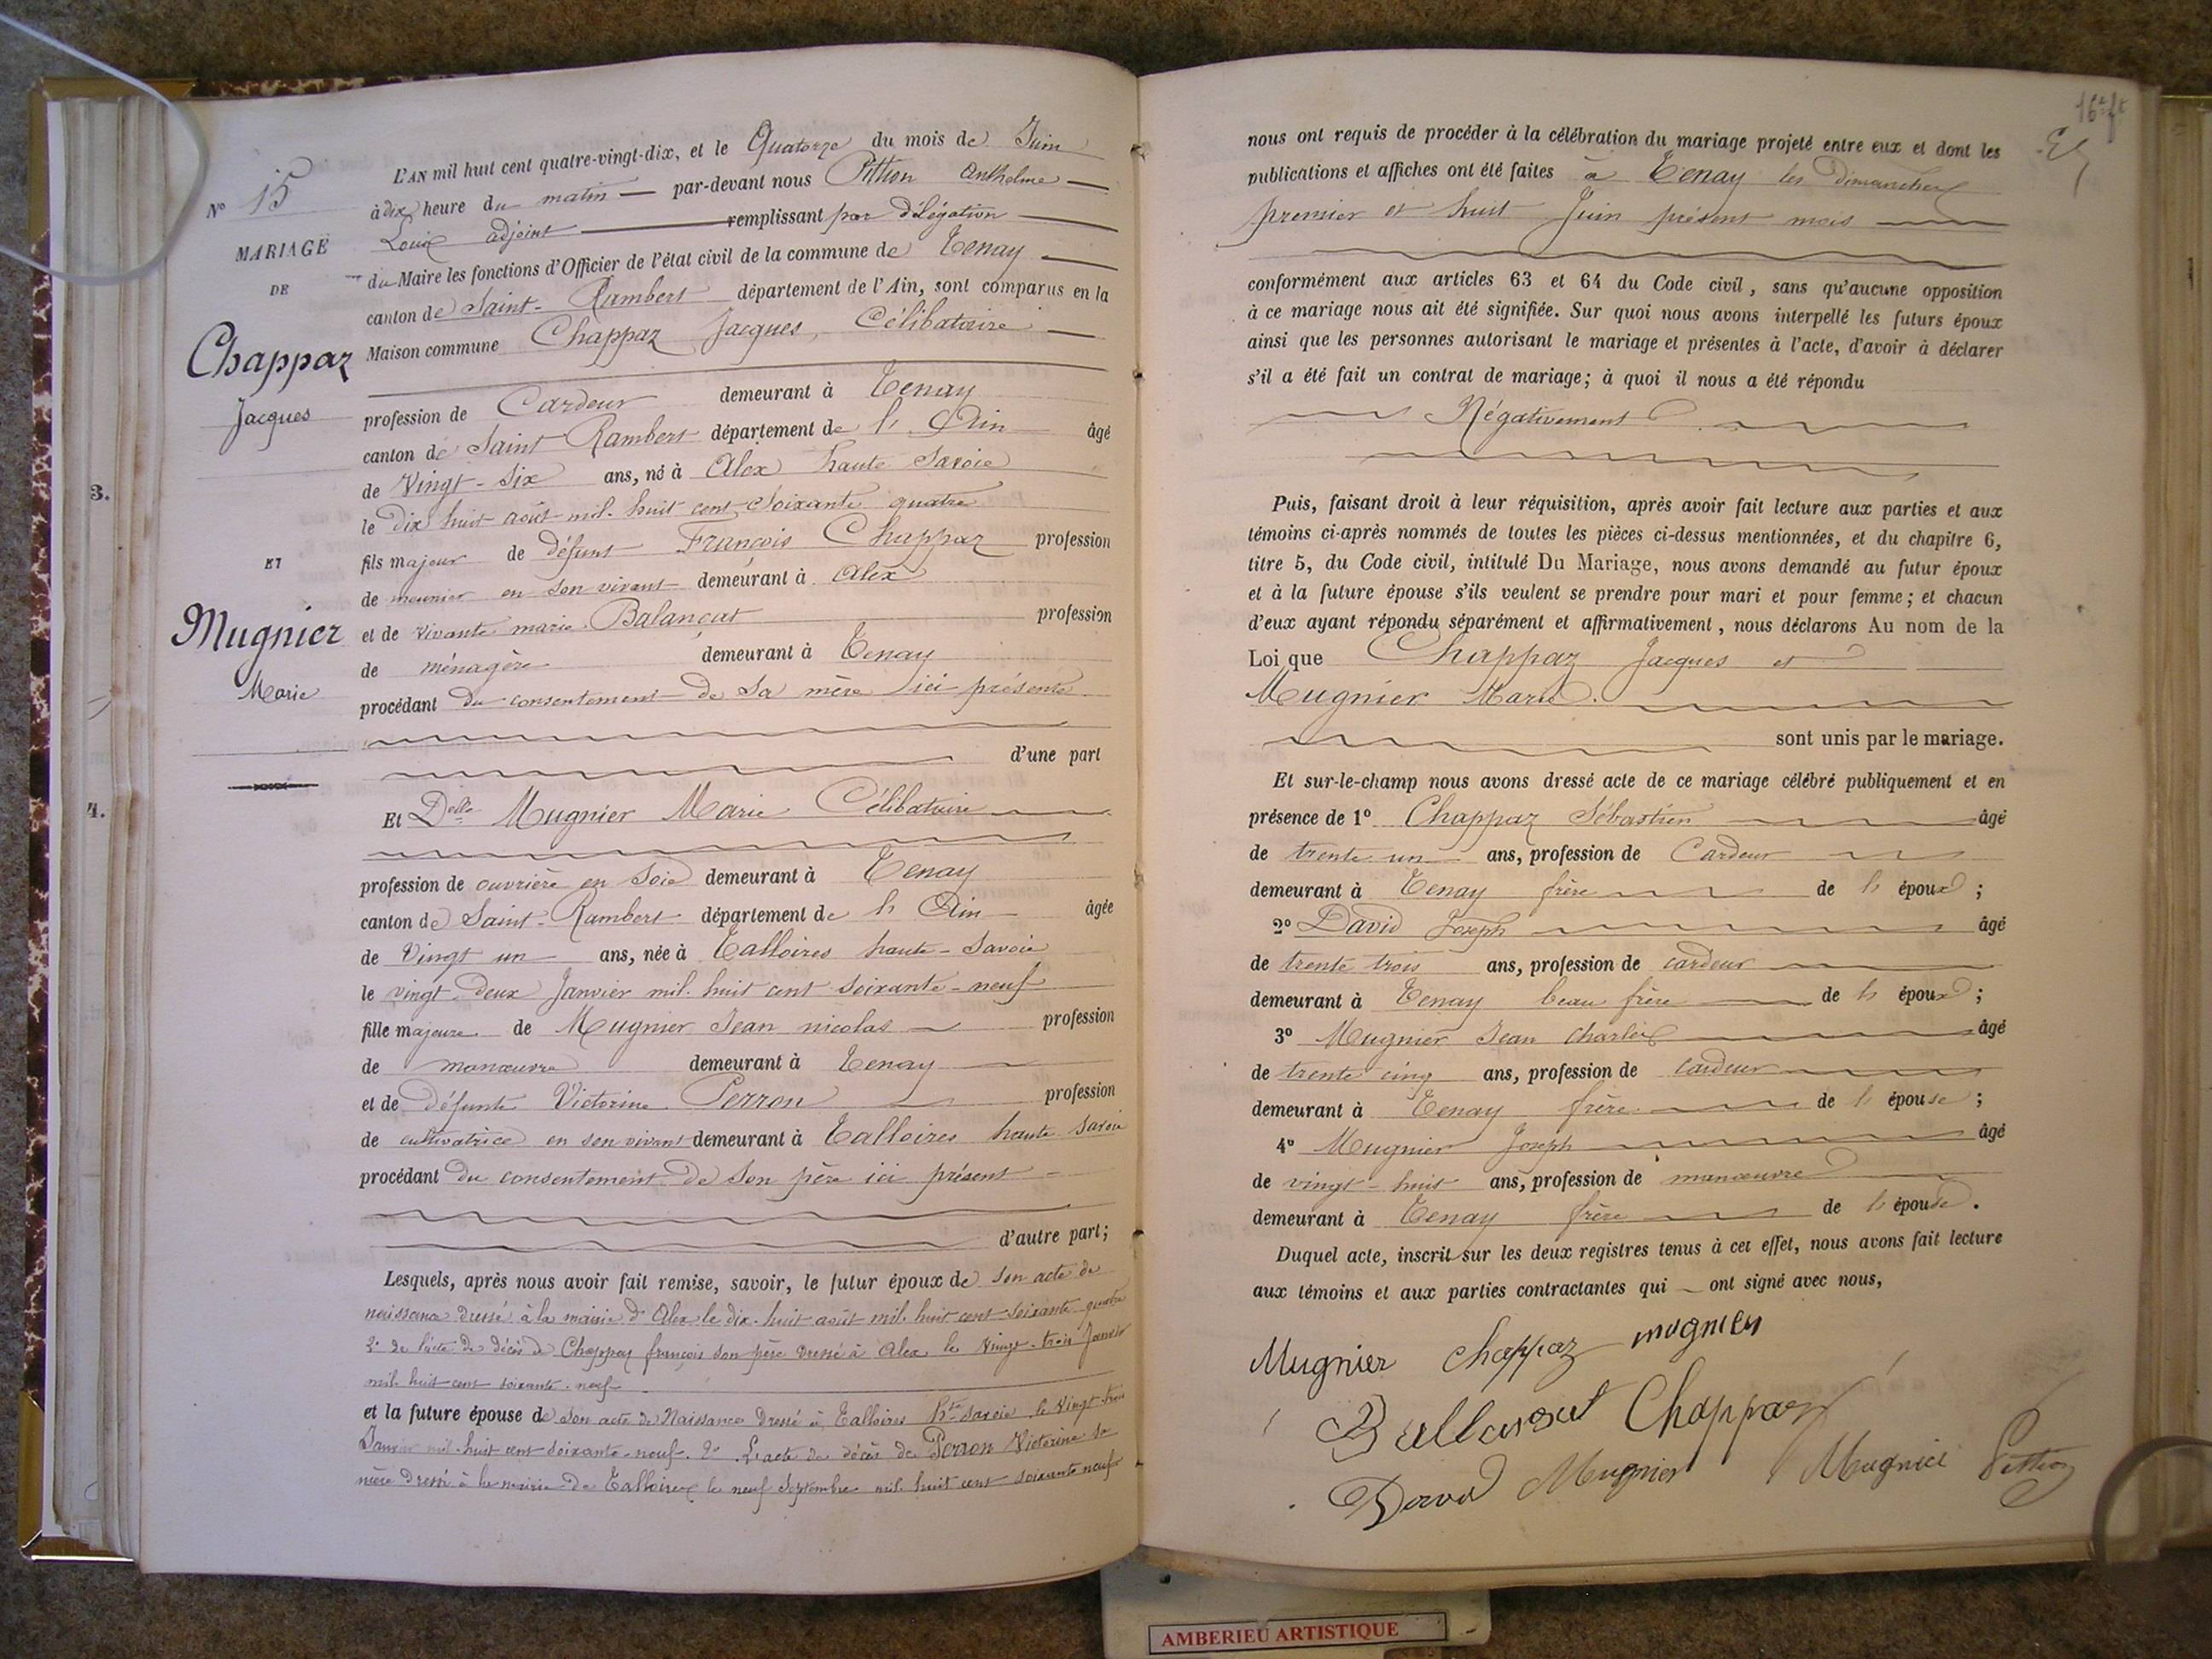 N° 15
MARIAGE
DE
Chappaz
Jacques
ET
Mugnier
Marie
3.
4.
L'AN mil huit cent quatre-vingt-dix, et le Quatorze du mois de Juin
à dix heure du matin — par-devant nous Pittion Anthelme —
Louis adjoint — remplissant par délégation —
du Maire les fonctions d'Officier de l'état civil de la commune de Tenay —
canton de Saint-Rambert département de l'Ain, sont comparus en la
Maison commune Chappaz Jacques, Célibataire —
profession de Cardeur demeurant à Tenay
canton de Saint Rambert département de l'Ain âgé
de Vingt-six ans, né à Alex haute Savoie
le dix huit août mil huit cent soixante quatre
fils majeur de défunt François Chappaz profession
de meunier en son vivant demeurant à Alex
et de vivante marie Balançat profession
de ménagère demeurant à Tenay
procédant du consentement de sa mère ici présente
d'une part
Et Delle Mugnier Marie Célibataire
profession de ouvrière en soie demeurant à Tenay
canton de Saint-Rambert département de l'Ain âgée
de Vingt un ans, née à Talloires haute-Savoie
le vingt deux Janvier mil huit cent soixante-neuf
fille majeure de Mugnier Jean nicolas profession
de manœuvre demeurant à Tenay
et de défunte Victorine Perron profession
de cultivatrice en son vivant demeurant à Talloires haute Savoie
procédant du consentement de son père ici présent
d'autre part;
Lesquels, après nous avoir fait remise, savoir, le futur époux de son acte de
naissance dressé à la mairie d'Alex le dix-huit août mil huit cent soixante quatre
2° de l'acte de décès de Chappaz françois son père dressé à Alex le vingt-trois Janvier
mil huit cent soixante-neuf
et la future épouse de son acte de Naissance dressé à Talloires Hte Savoie le vingt-trois
Janvier mil huit cent soixante-neuf. 2° L'acte de décès de Perron Victorine sa
mère dressé à la mairie de Talloires le neuf Septembre mil huit cent soixante neuf
nous ont requis de procéder à la célébration du mariage projeté entre eux et dont les
publications et affiches ont été faites à Tenay les dimanches
premier et huit Juin présent mois
conformément aux articles 63 et 64 du Code civil, sans qu'aucune opposition
à ce mariage nous ait été signifiée. Sur quoi nous avons interpellé les futurs époux
ainsi que les personnes autorisant le mariage et présentes à l'acte, d'avoir à déclarer
s'il a été fait un contrat de mariage; à quoi il nous a été répondu
Négativement
Puis, faisant droit à leur réquisition, après avoir fait lecture aux parties et aux
témoins ci-après nommés de toutes les pièces ci-dessus mentionnées, et du chapitre 6,
titre 5, du Code civil, intitulé Du Mariage, nous avons demandé au futur époux
et à la future épouse s'ils veulent se prendre pour mari et pour femme; et chacun
d'eux ayant répondu séparément et affirmativement, nous déclarons Au nom de la
Loi que Chappaz Jacques et
Mugnier Marie.
sont unis par le mariage.
Et sur-le-champ nous avons dressé acte de ce mariage célébré publiquement et en
présence de 1° Chappaz Sébastien âgé
de trente un ans, profession de Cardeur
demeurant à Tenay frère de l'époux;
2° David Joseph âgé
de trente trois ans, profession de cardeur
demeurant à Tenay beau frère de l'époux;
3° Mugnier Jean Charles âgé
de trente cinq ans, profession de cardeur
demeurant à Tenay frère de l'épouse;
4° Mugnier Joseph âgé
de vingt-huit ans, profession de manœuvre
demeurant à Tenay frère de l'épouse.
Duquel acte, inscrit sur les deux registres tenus à cet effet, nous avons fait lecture
aux témoins et aux parties contractantes qui — ont signé avec nous,
Mugnier Chappaz mugnier
Ballansat Chappaz
David Mugnier Mugnier Pittion
AMBERIEU ARTISTIQUE